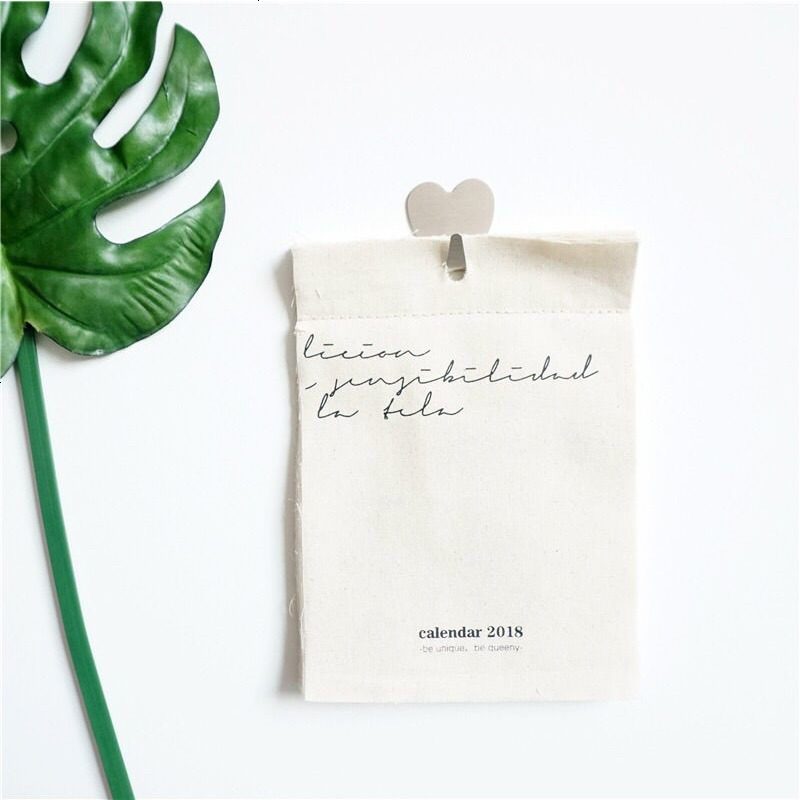 licion
- sensibilidad
la tela
calendar 2018
-be unique, be queeny-